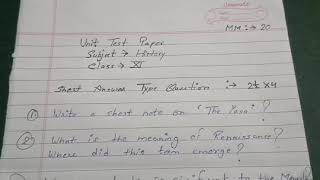 MM :→ 20
Unit Test Paper
Subject → History
Class → XI
Short Answer Type Question :→ 2½ × 4
① Write a short note on "The Yasa"?
② What is the meaning of Renaissance?
Where did this term emerge?
to the